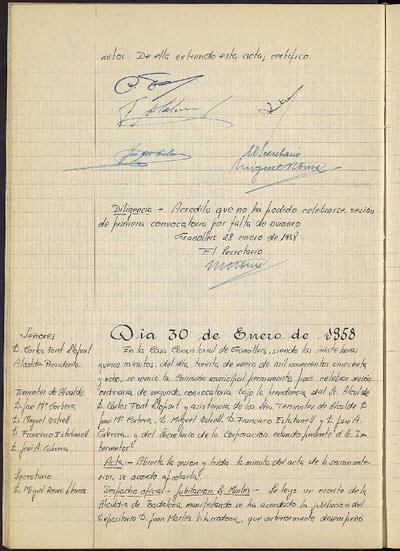 nutos. De ella extiendo esta acta, certifico.
El Secretario
Diligencia.- Acredito que no ha podido celebrarse sesión
de primera convocatoria por falta de número
Granollers 28 enero de 1958
El Secretario
Señores
D. Carlos Font Llopart
Alcalde Presidente
Tenientes de Alcalde
D. José Mª Corbera
D. Miguel
D. Francisco Estabanell
D. José A. Cabrera
Secretario
D. Miguel
Dia 30 de Enero de 1958
En la Casa Consistorial de Granollers, siendo las veinte horas
quince minutos, del día treinta de enero de mil novecientos cincuenta
y ocho, se reunió la Comisión municipal permanente para celebrar sesión
ordinaria de segunda convocatoria bajo la presidencia del Sr. Alcalde
D. Carlos Font Llopart y asistencia de los Sres. Tenientes de Alcalde D.
José Mª Corbera, D. Miguel D. Francisco Estabanell y D. José A.
Cabrera, y del Secretario de la Corporación estando presente el Sr. In-
terventor
Acta.- Abierta la sesión y leída la minuta del acta de la sesión ante-
rior, se acordó aprobarla.
Despacho oficial.- Jubilación Sr. Martés.- Se leyó un escrito de la
Alcaldía de Badalona manifestando se ha acordado la jubilación del
Depositario D. Juan que anteriormente desempeñó